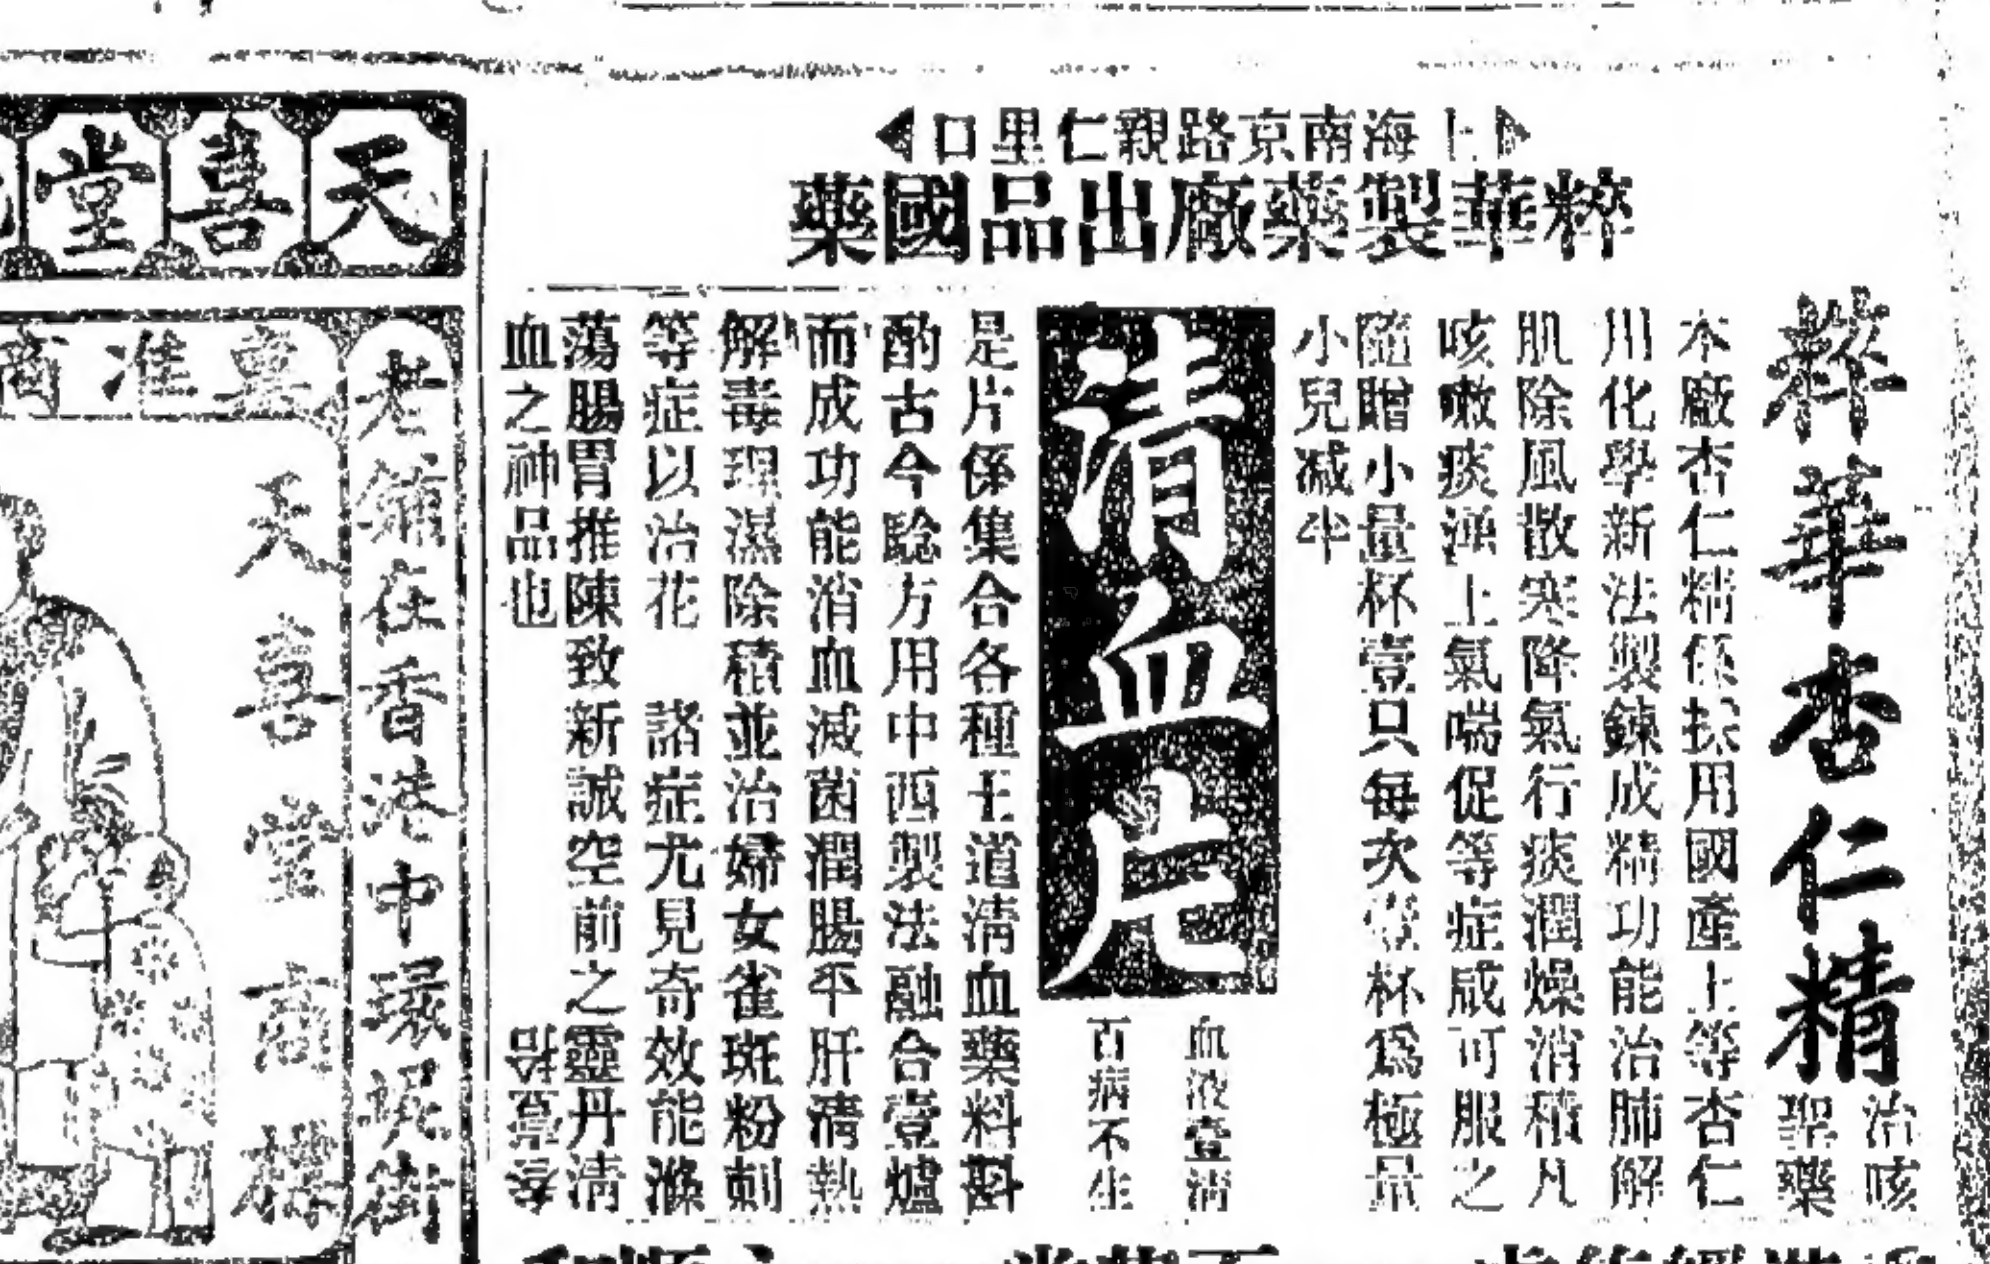 上海南京路親仁里口
粹華製藥廠出品國藥
粹華杏仁精
治咳
聖藥
本廠杏仁精係採用國產上等杏仁
川化學新法製鍊成精功能治肺解
肌除風散寒降氣行痰潤燥消積凡
咳嗽痰湧上氣喘促等症咸可服之
隨贈小量杯壹只每次壹杯爲極量
小兒减半
清血片
血液壹清
百病不生
是片係集合各種王道清血藥料斟
酌古今驗方用中西製法融合壹爐
而成功能消血滅菌潤腸平肝清熱
解毒理濕除積並治婦女雀斑粉刺
等症以治花 諸症尤見奇效能滌
蕩腸胃推陳致新誠空前之靈丹清
血之神品也
天喜堂
老舖在香港中環
稟准商
天喜堂商標